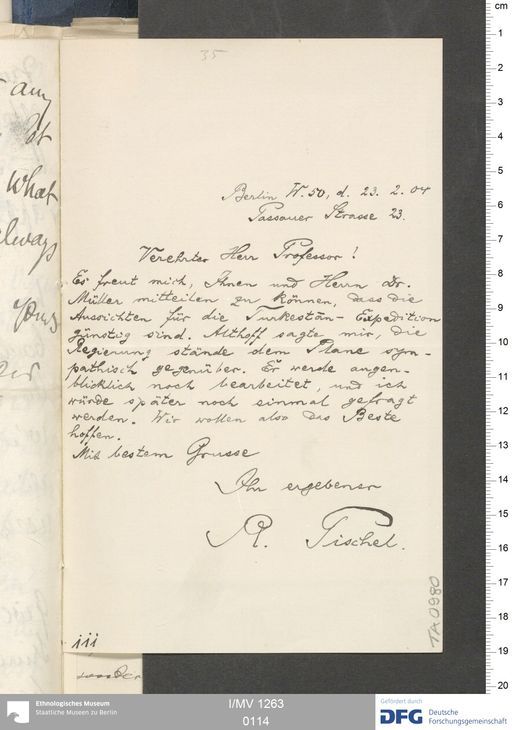 35
Berlin W. 50, d. 23. 2. 04
Passauer Strasse 23.
Verehrter Herr Professor!
Es freut mich, Ihnen und Herrn Dr.
Müller mitteilen zu können, dass die
Aussichten für die Turkestān-Expedition
günstig sind. Althoff sagte mir, die
Regierung stände dem Plane sym-
pathisch gegenüber. Er werde augen-
blicklich noch bearbeitet, und ich
würde später noch einmal gefragt
werden. Wir wollen also das Beste
hoffen.
Mit bestem Grusse
Ihr ergebener
R. Pischel.
TA 0980
any
what
always
cm
1
2
3
4
5
6
7
8
9
10
11
12
13
14
15
16
17
18
19
20
Ethnologisches Museum
Staatliche Museen zu Berlin
I/MV 1263
0114
Gefördert durch
DFG Deutsche
Forschungsgemeinschaft